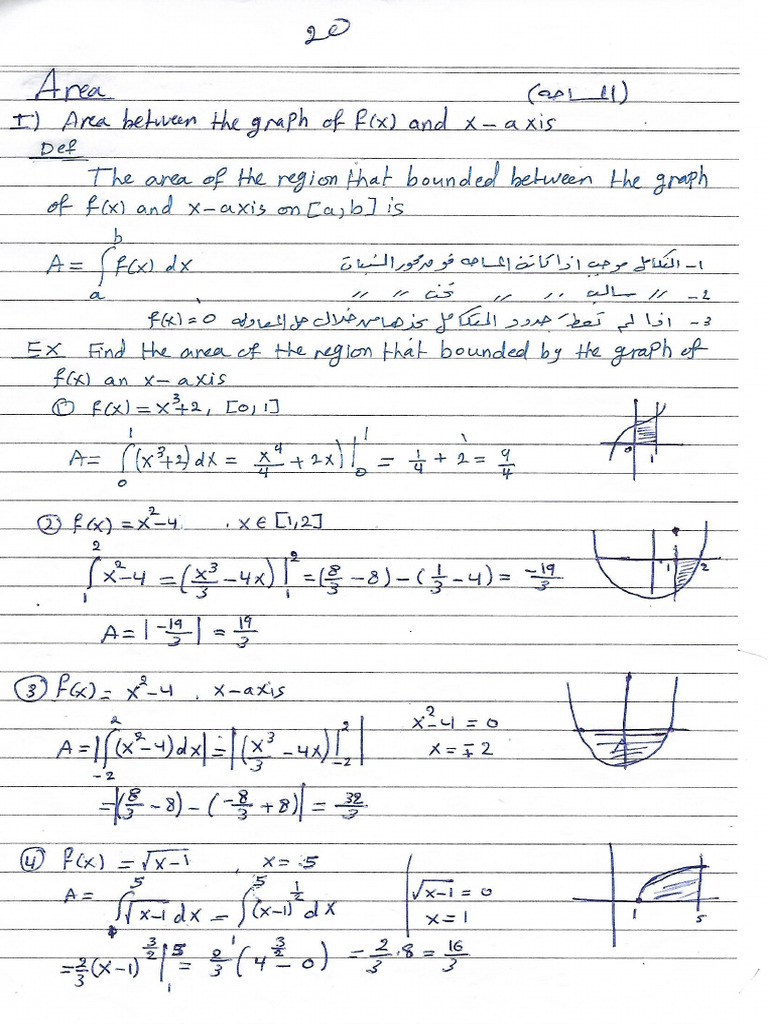 20
Area (المساحه)
I) Area between the graph of f(x) and x-axis
Def
The area of the region that bounded between the graph
of f(x) and x-axis on [a,b] is
A = ∫_a^b f(x) dx 1- التكامل موجب اذا كانت المساحه فوق محور السينات
2- // سالب // // تحت // //
3- اذا لم تعط حدود التكامل نجدها من خلال حل المعادله f(x)=0
EX Find the area of the region that bounded by the graph of
f(x) an x-axis
① f(x) = x³+2, [0,1]
A = ∫_0^1 (x³+2) dx = x⁴/4 + 2x)|_0^1 = 1/4 + 2 = 9/4
0 1
② f(x) = x²-4 , x ∈ [1,2]
∫_1^2 x²-4 = (x³/3 - 4x)|_1^2 = (8/3 - 8) - (1/3 - 4) = -19/3
1 2
A = |-19/3| = 19/3
③ f(x) = x²-4 , x-axis
A = |∫_-2^2 (x²-4) dx| = |(x³/3 - 4x)|_-2^2| x²-4 = 0
x = ∓2
A
= |(8/3 - 8) - (-8/3 + 8)| = 32/3
④ f(x) = √x-1 , x = 5
A = ∫_1^5 √x-1 dx = ∫_1^5 (x-1)^1/2 dx √x-1 = 0
x = 1
1 5
= 2/3 (x-1)^3/2 |_1^5 = 2/3 (4^3/2 - 0) = 2/3 · 8 = 16/3